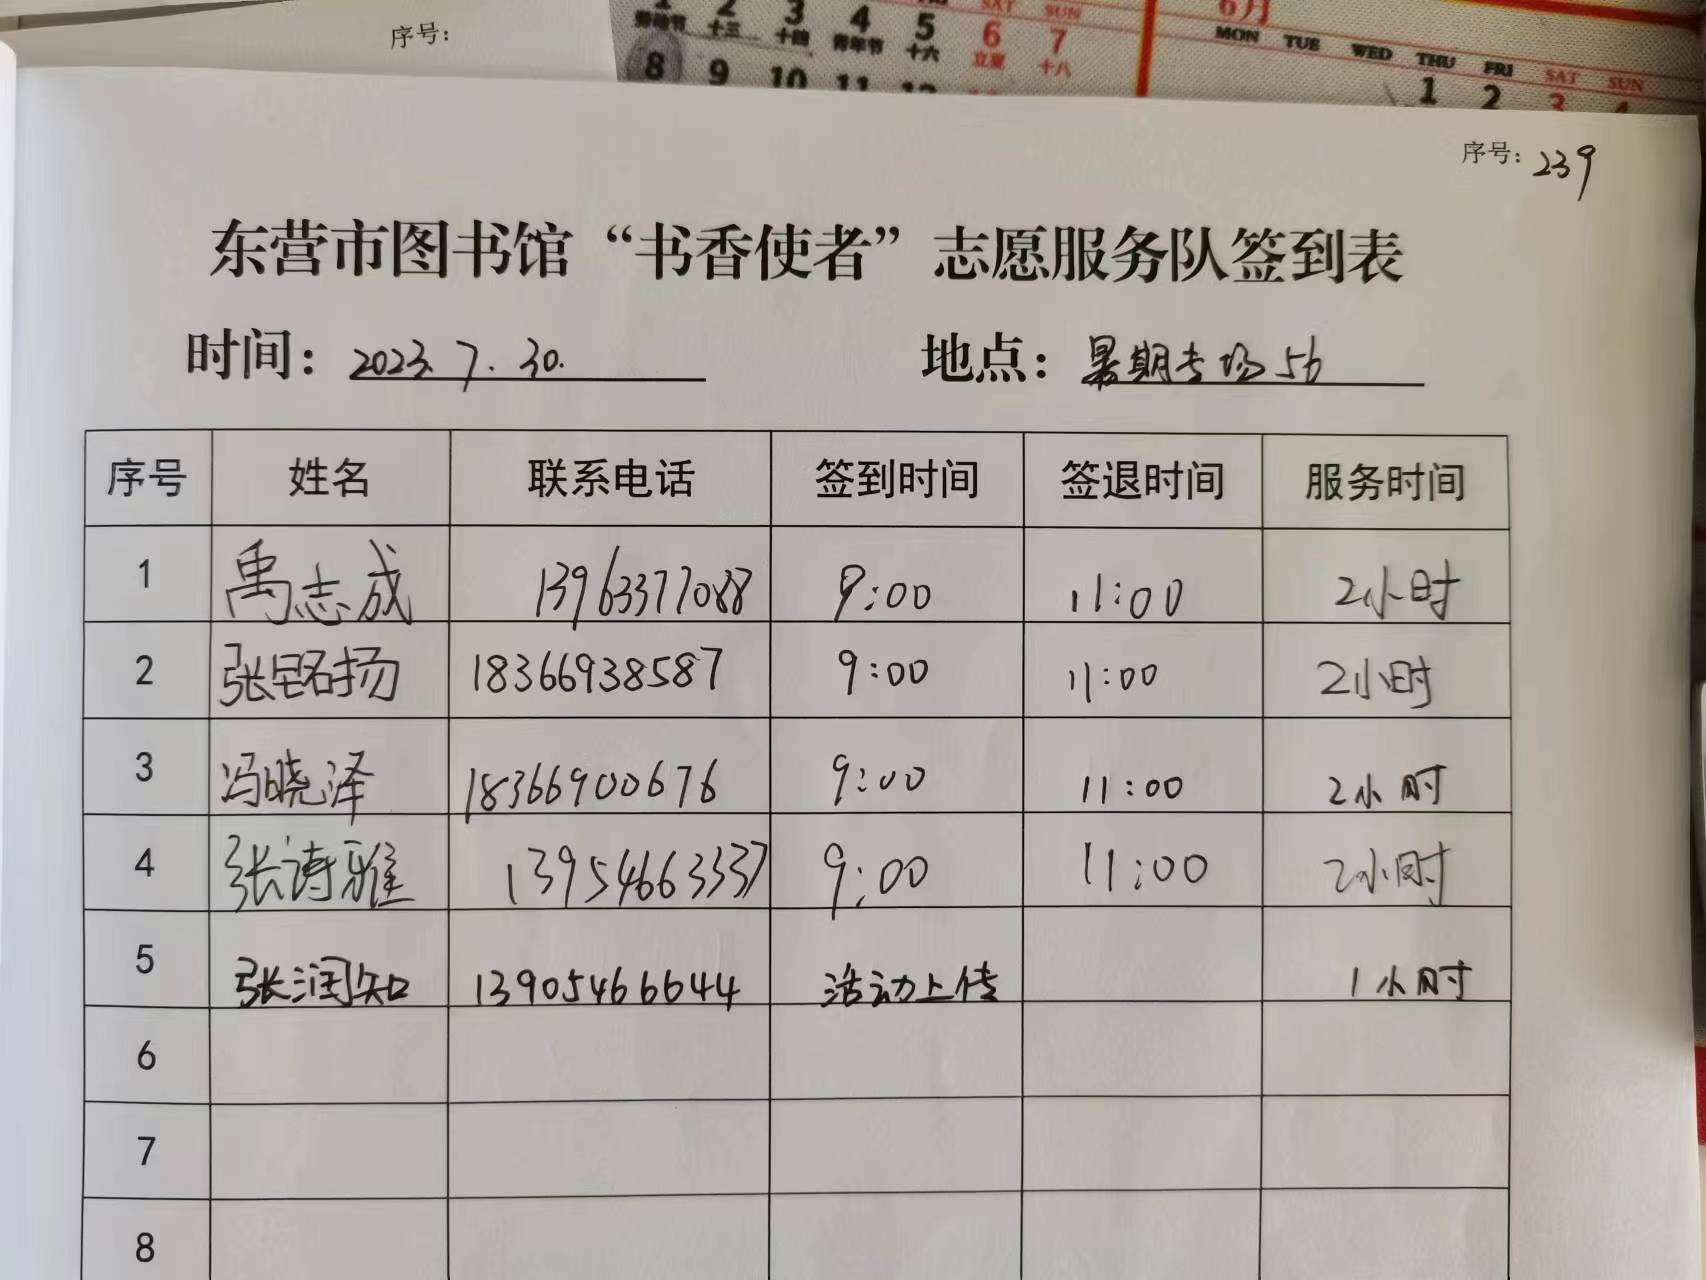 序号：
1 2 3 4 5 6 7
劳动节 十三 十四 青年节 十六 立夏 十八
8 9 10 11 12
SAT SUN
6月
MON TUE WED THU FRI SAT SUN
1 2 3 4
序号：239
东营市图书馆“书香使者”志愿服务队签到表
时间：2023.7.30. 地点：暑期专场56
序号 姓名 联系电话 签到时间 签退时间 服务时间
1 禹志成 13963377088 9:00 11:00 2小时
2 张铭扬 18366938587 9:00 11:00 2小时
3 冯晓泽 18366900676 9:00 11:00 2小时
4 张诗雅 13954663337 9:00 11:00 2小时
5 张润知 13905466644 活动上传 1小时
6
7
8